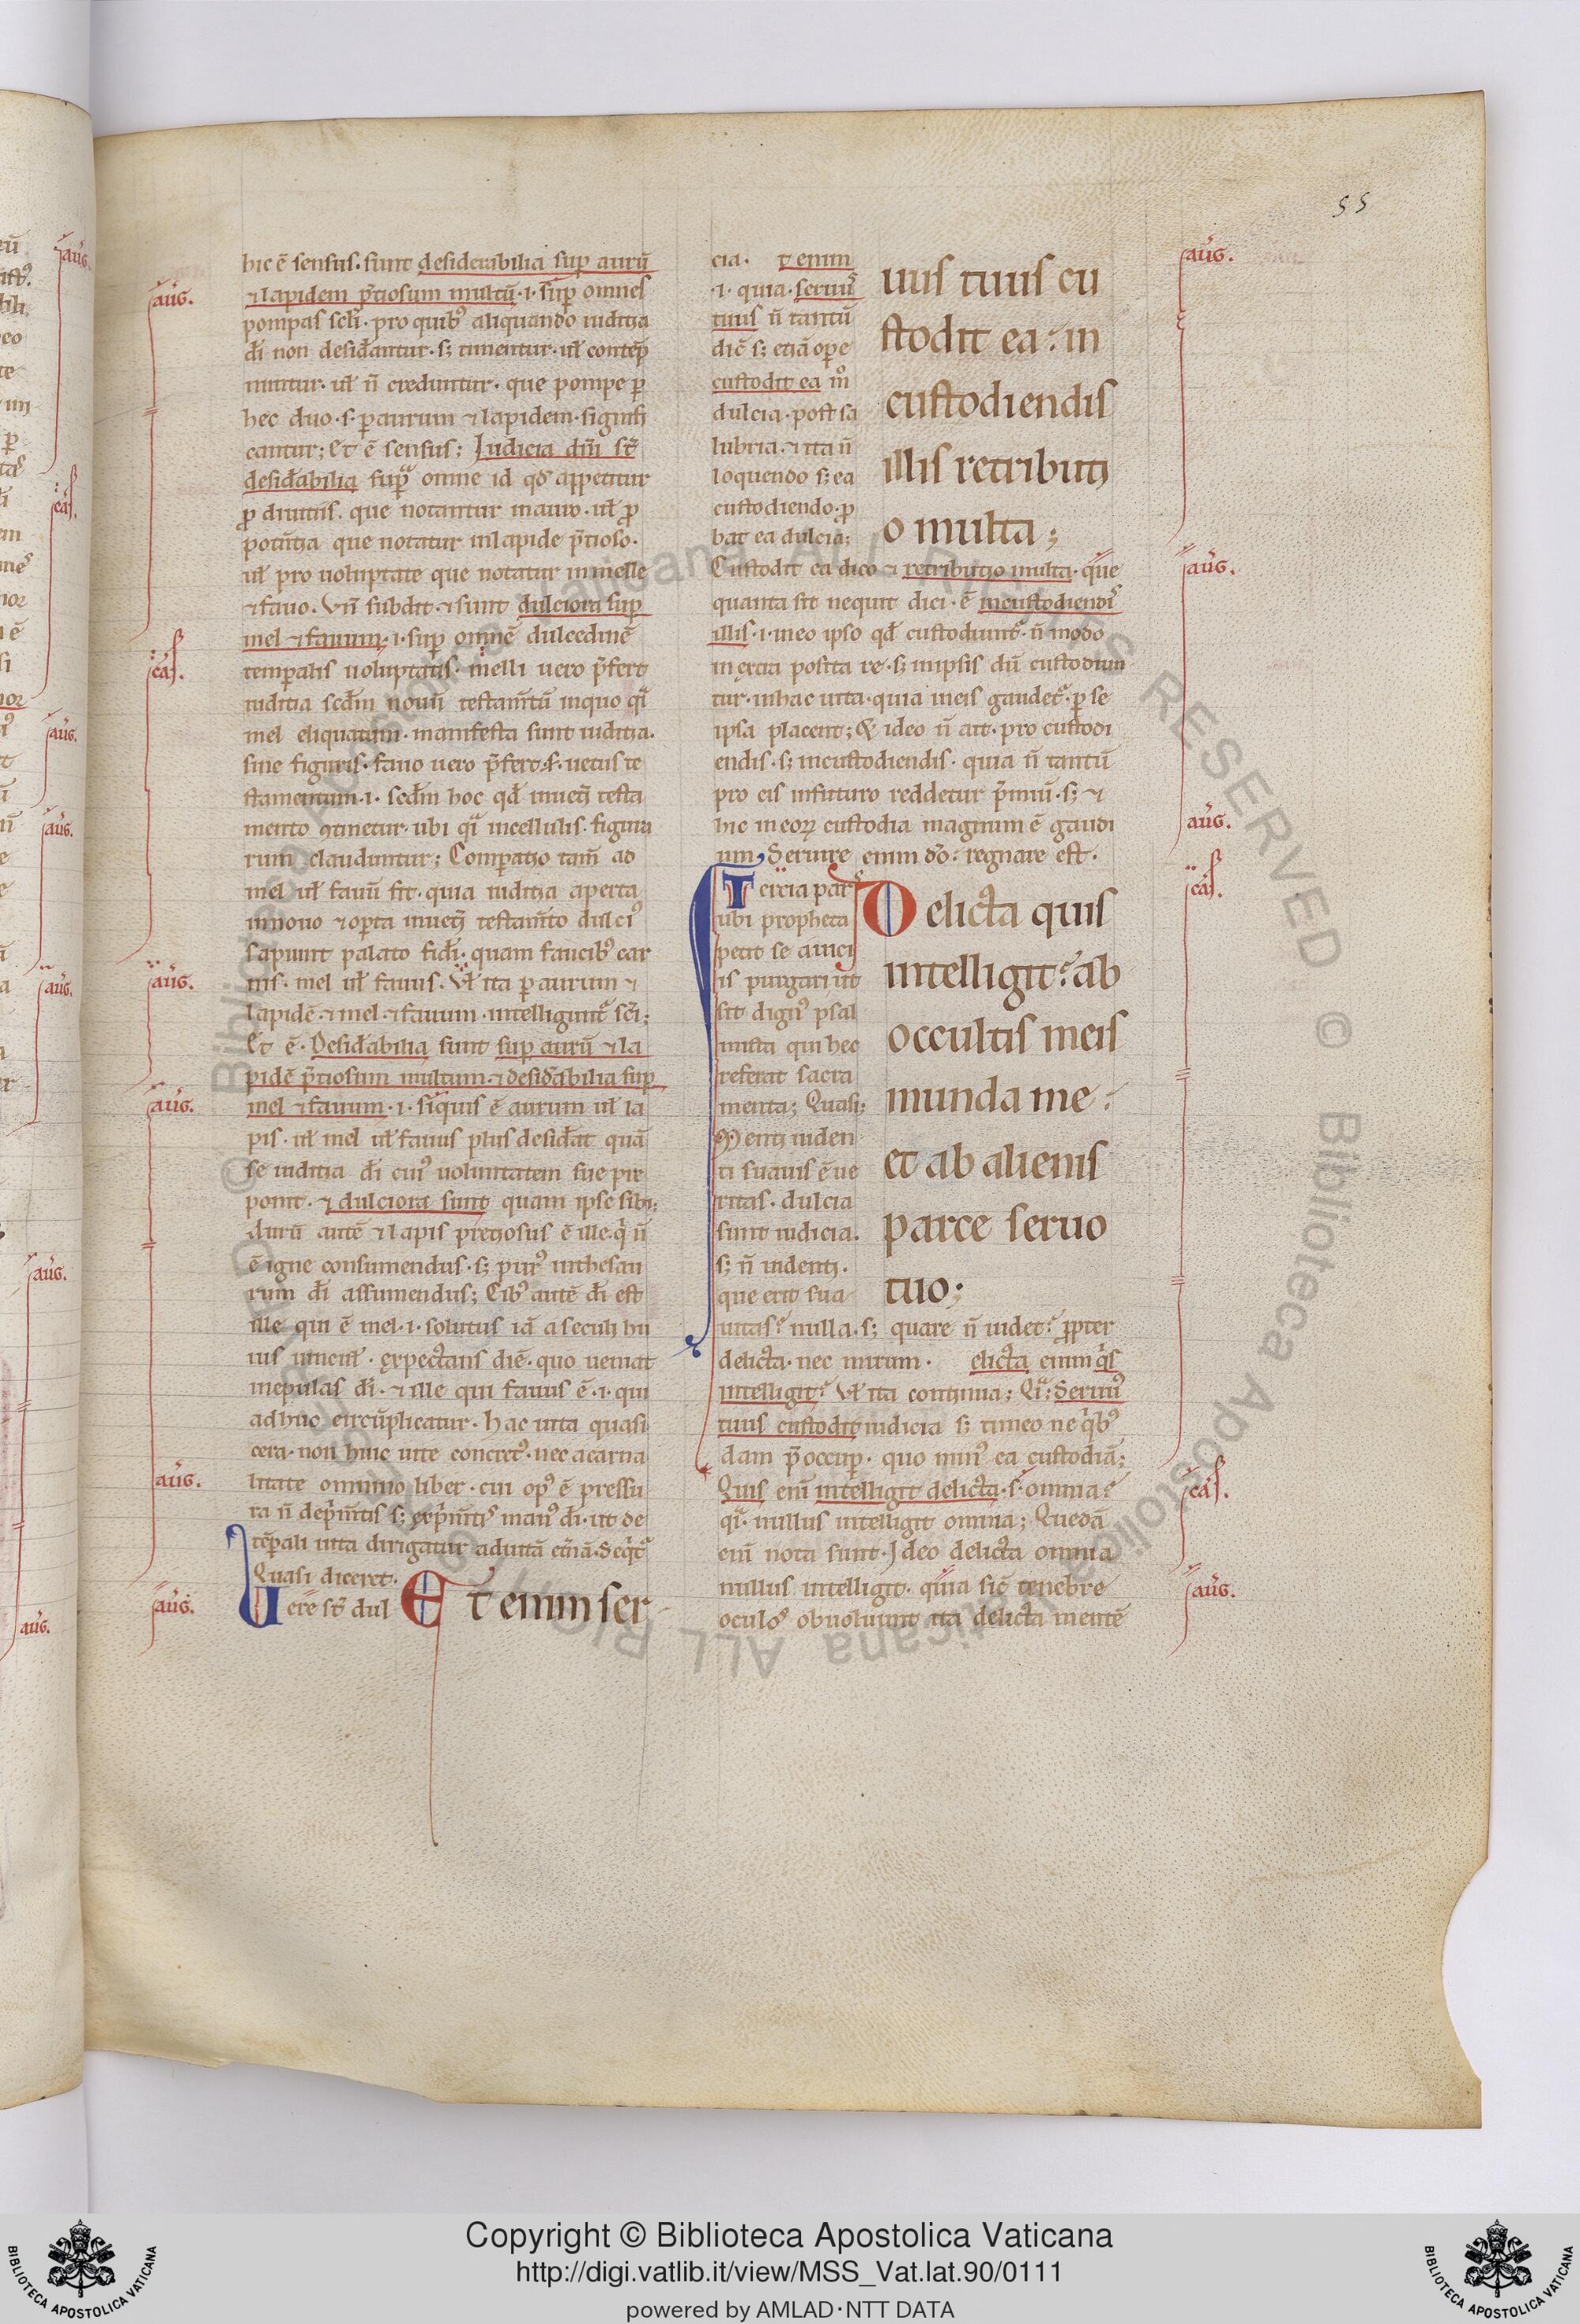 55
hic ē sensus. sunt desiderabilia sup aurū
⁊ lapidem p̄tiosum multū .i. sup omnes
pompas scłi. pro quibꝰ aliquando iuditia
dī non desiđantur. s; timentur. uł contēp
nuntur. uł ñ creduntur. que pompe p̱
hec duo .s. p̱ aurum ⁊ lapidem. signifi
cantur; Et ē sensus; Iudicia dñi st̄
desiđabilia supᵃ omne id qđ appetitur
ꝓ diuitiis. que notantur in auro. uł ꝓ
potētia que notatur in lapide p̄tioso.
uł pro uoluptate que notatur in melle
⁊ fauo. Vñ subdit. ⁊ sunt dulciora sup
mel ⁊ fauum .i. sup omnē dulcedinē
temp̱alis uoluptatis. melli uero p̄fert
iuditia scđm nouū testam̄tū in quo qᵃi
mel eliquatum. manifesta sunt iuditia.
sine figuris. fauo uero p̄fert .s. uetus te
stamentum .i. scđm hoc qđ in uetī testa
mento ꝯtinetur. ubi qᵃi in cellulis. figura
rum clauduntur; Comparatio tam̄ ad
mel uł fauū fit. quia iuditia aperta
in nouo ⁊ op̱ta in uetī testam̄to dulciꝰ
sapiunt palato fidī. quam faucibꝰ car
nis. mel uł fauus. Vł ita p̱ aurum ⁊
lapidē ⁊ mel ⁊ fauum. intelliguntᵘ sc̄i;
Et ē. Desiđabilia sunt sup aurū ⁊ la
pidē p̄tiosum multum. ⁊ desiđabilia sup
mel ⁊ fauum .i. siquis ē aurum uł la
pis. uł mel uł fauus plus desiđat quā
se iuditia dī cuiꝰ uoluntatem sue pre
ponit. ⁊ dulciora sunt quam ipse sibi;
Aurū autē ⁊ lapis pretiosus ē ille qͥ ñ
ē igne consumendus. s; puͥꝰ in thesau
rum dī assumendus; Cibꝰ autē dī est
ille qui ē mel .i. solutus iā a seculi hu
ius
expectans diē. quo ueniat
in epulas dī. ⁊ ille qui fauus ē .i. qui
adhuc circūplicatur. hac uita quasi
cera. non huic uite concretꝰ. nec a carna
litate omnino liber. cui opꝰ ē pressu
ra ñ dep̄m̄tis s; exp̄m̄tis manꝰ dī. ut de
tēp̱ali uita dirigatur ad uitā et̄nā. Seqͥtᵘ
Quasi diceret.
Vere st̄ dul Et enim ser
cia. t enim
.i. quia. seruꝰ
tuus ñ tantū
dic̄ s; etiā ope
custodit ea m̊
dulcia. post sa
lubria. ⁊ ita ñ
loquendo s; ea
custodiendo. ꝓ
bat ea dulcia;
uus tuus cu
stodit ea: in
custodiendis
illis retributi
o multa;
Custodit ea dico ⁊ retributio multa. que
quanta sit nequit dici. ē in custodiendꝭ
illis .i. in eo ipso qđ custodiuntᵘ. ñ modo
in exͭia posita re. s; in ipsis dū custodiun
tur. in hac uita. quia in eis gaudetᵘ. p̱ se
ipsa placent; & ideo ñ ait. pro custodi
endis. s; in custodiendis. quia ñ tantū
pro eis in futuro reddetur p̄miū. s; ⁊
hic in eoꝝ custodia magnum ē gaudi
um, Seruire enim đo: regnare est.
Tercia pars
ubi propheta
petit se a uici
is purgari ut
sit dignꝰ psal
mista qui hec
referat sacra
menta; Quasi:
Menti uiden
ti suauis ē ue
ritas. dulcia
sunt iudicia.
s; ñ uidenti.
que erit sua
Delicta quis
intelligit? ab
occultis meis
munda me:
et ab alienis
parce seruo
tuo;
uitas? nulla. s; quare ñ uidet? ꝓpter
delicta. nec mirum. elicta enim qͥs
intelligit? Vł ita continua; Qᵃi: Seruꝰ
tuus custodit iudicia s; timeo ne qͥbꝰ
dam p̄occup̱. quo minꝰ ea custodiā;
Quis eni intelligit delicta .s. omnia?
qᵃi. nullus intelligit omnia; Quedā
eni nota sunt. Ideo delicta omnia
nullus intelligit. quia sic̄ tenebre
oculos obuoluunt ita delicta mentē
aug.
cas.
aug.
aug.
aug.
aug.
aug.
aug.
aug.
cas.
cas.
aug.
© Biblioteca Apostolica Vaticana ALL RIGHTS RESERVED
Copyright © Biblioteca Apostolica Vaticana
http://digi.vatlib.it/view/MSS_Vat.lat.90/0111
powered by AMLAD·NTT DATA
BIBLIOTECA APOSTOLICA VATICANA
BIBLIOTECA APOSTOLICA VATICANA